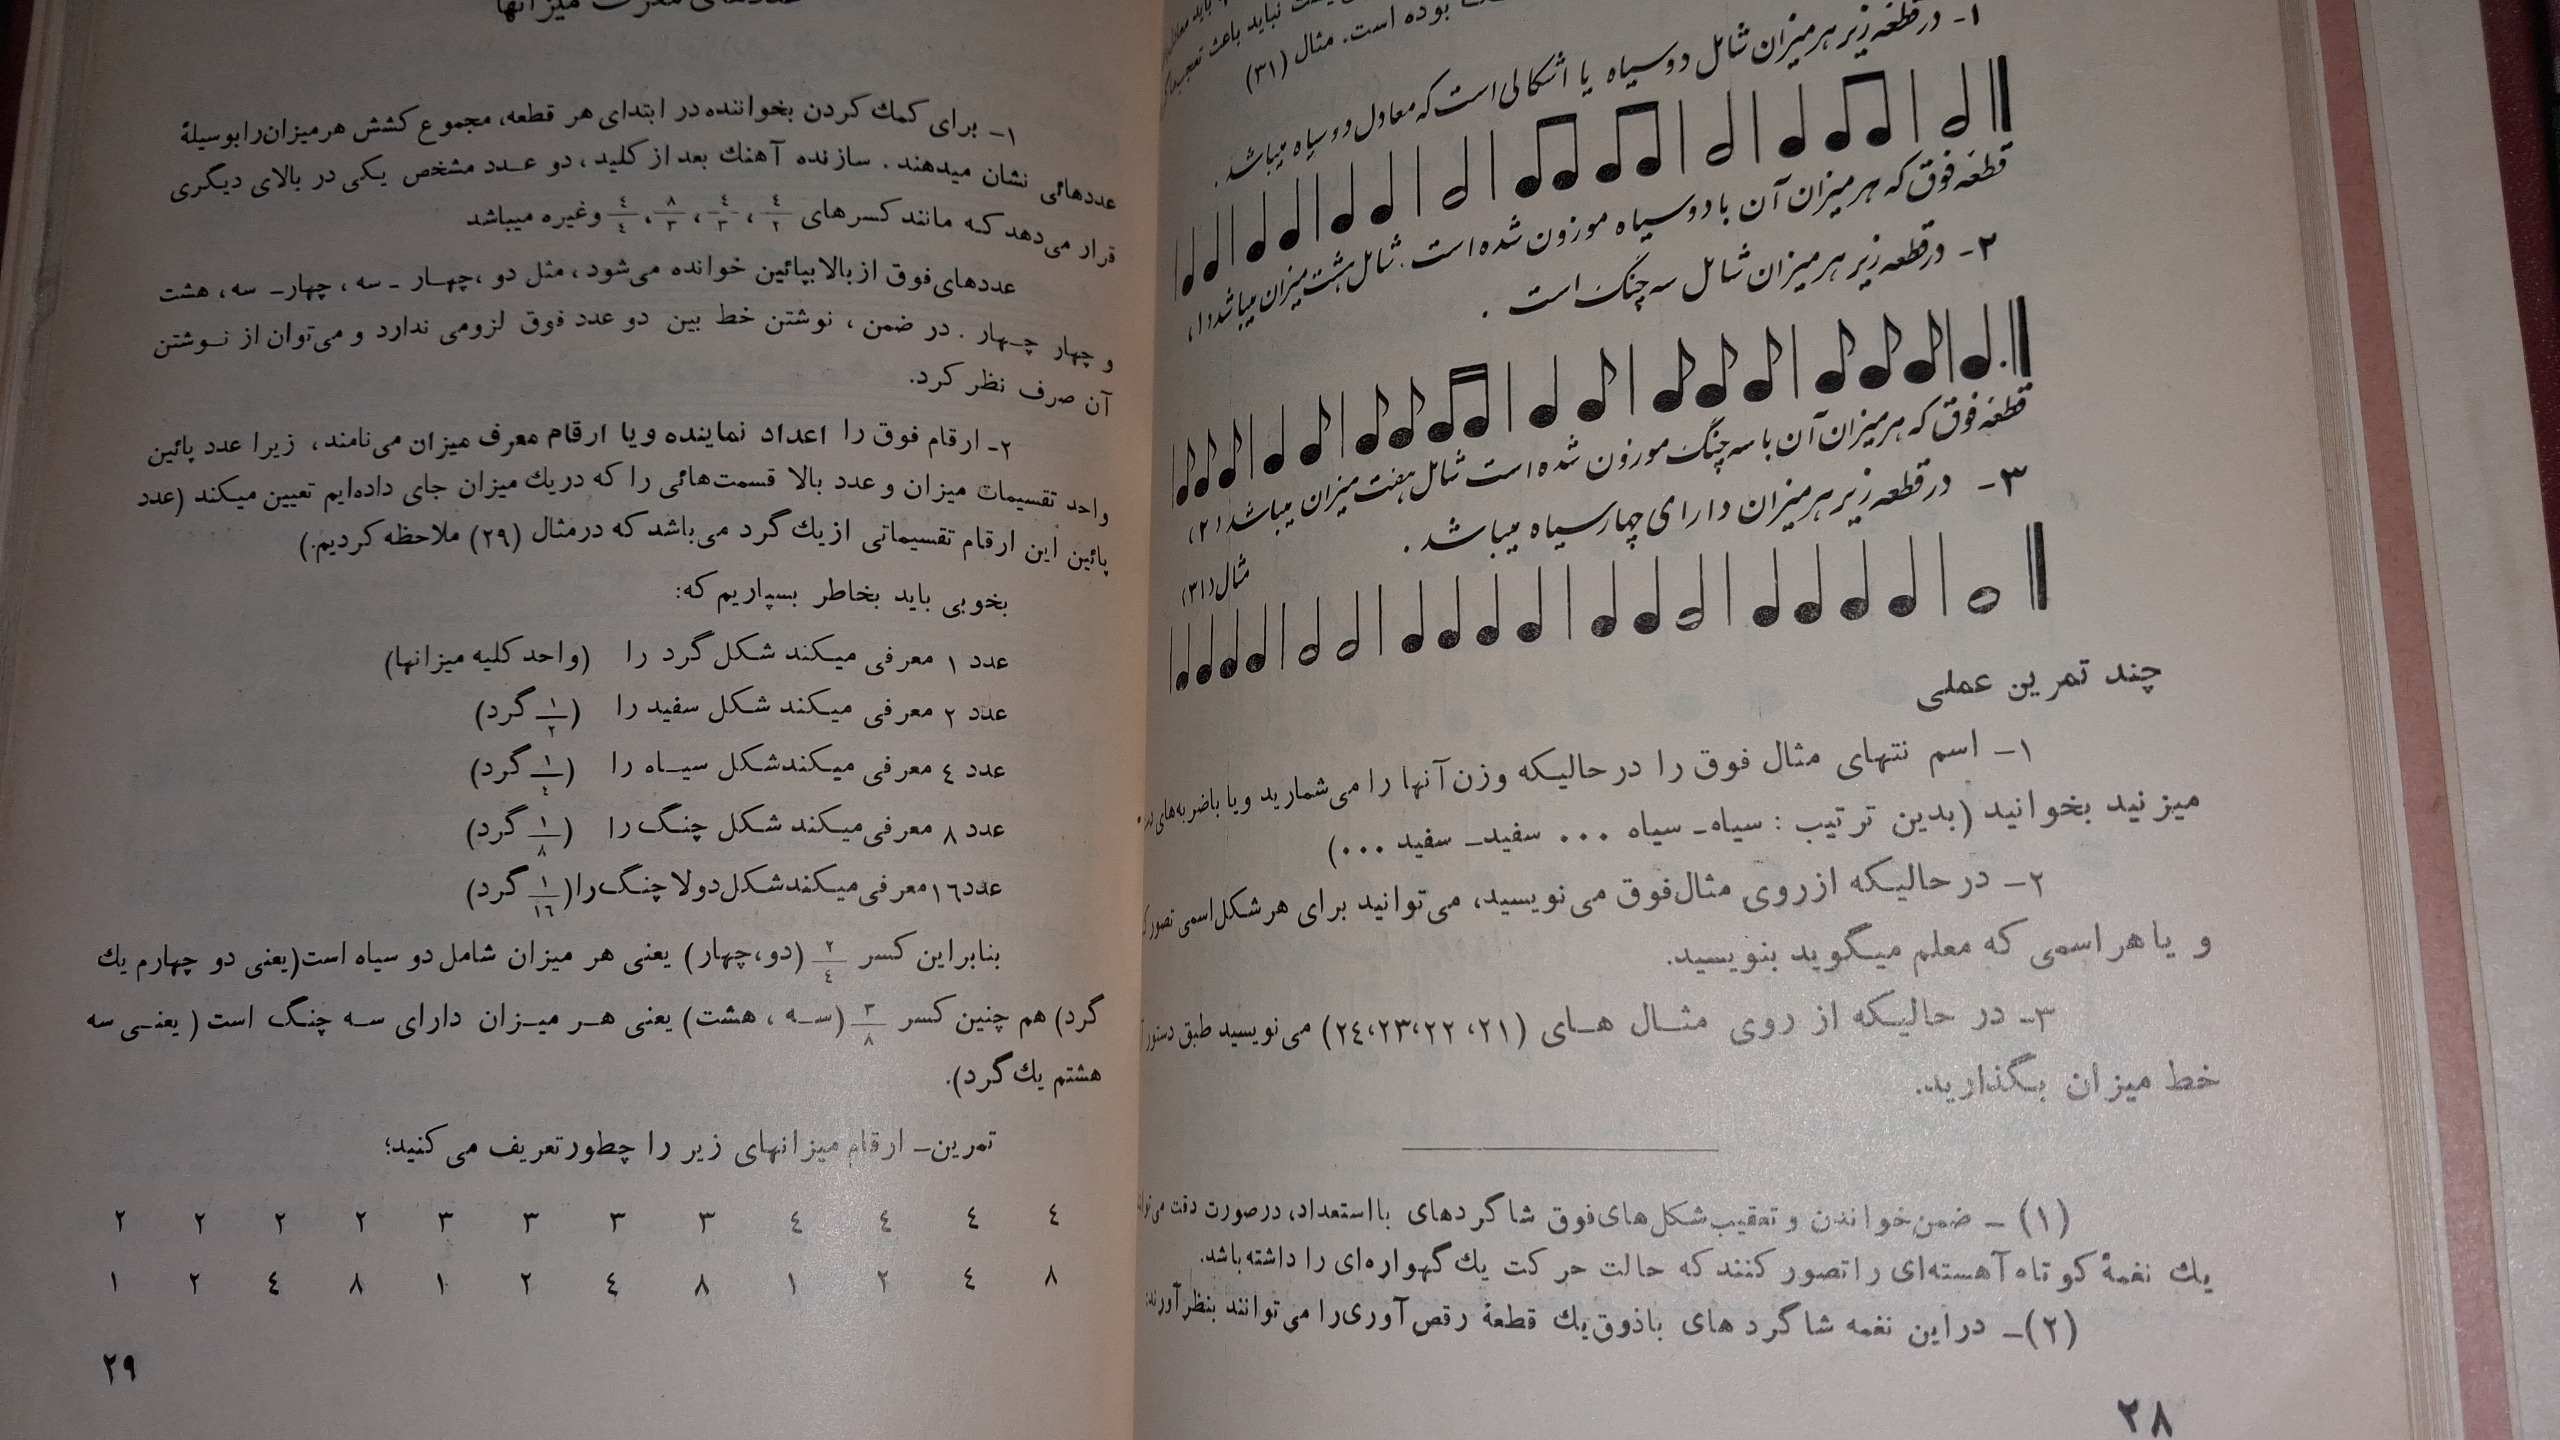 بوده است. مثال (۳۱)
۱- در قطعه زیر هر میزان شامل دو سیاه یا اشکالی است که معادل دو سیاه میباشد.
قطعه فوق که هر میزان آن با دو سیاه موزون شده است. شامل هشت میزان میباشد (۱)
۲- در قطعه زیر هر میزان شامل سه چنگ است.
قطعه فوق که هر میزان آن با سه چنگ موزون شده است شامل هفت میزان میباشد (۲)
۳- در قطعه زیر هر میزان دارای چهار سیاه میباشد.
مثال (۳۱)
چند تمرین عملی
۱- اسم نتهای مثال فوق را در حالیکه وزن آنها را می‌شمارید و یا با ضربه‌های
میزنید بخوانید (بدین ترتیب : سیاه- سیاه ... سفید- سفید ...)
۲- در حالیکه از روی مثال فوق می‌نویسید، می‌توانید برای هر شکل اسمی تصور
و یا هر اسمی که معلم میگوید بنویسید.
۳- در حالیکه از روی مثال های (۲۱، ۲۲، ۲۳، ۲٤) می‌نویسید طبق دستور
خط میزان بگذارید.
(۱) - ضمن خواندن و تعقیب شکل های فوق شاگردهای با استعداد، در صورت دقت
یك نغمهٔ کوتاه آهسته‌ای را تصور کنند که حالت حرکت یك گهواره‌ای را داشته باشد.
(۲)- در این نغمه شاگرد های با ذوق یك قطعهٔ رقص آوری را می‌توانند بنظر آورند
۲۸
۱- برای کمك کردن بخواننده در ابتدای هر قطعه، مجموع کشش هر میزان را بوسیلهٔ
عددهائی نشان میدهند. سازنده آهنك بعد از کلید، دو عدد مشخص یکی در بالای دیگری
قرار می‌دهد که مانند کسرهای ٤/۲ ، ٤/۳ ، ۸/۳ ، ٤/٤ وغیره میباشد
عددهای فوق از بالا بپائین خوانده می‌شود، مثل دو ،چهار - سه ، چهار- سه ، هشت
و چهار چهار . در ضمن ، نوشتن خط بین دو عدد فوق لزومی ندارد و می‌توان از نوشتن
آن صرف نظر کرد.
۲- ارقام فوق را اعداد نماینده و یا ارقام معرف میزان می‌نامند، زیرا عدد پائین
واحد تقسیمات میزان و عدد بالا قسمت‌هائی را که در یك میزان جای داده‌ایم تعیین میکند (عدد
پائین این ارقام تقسیماتی از یك گرد می‌باشد که در مثال (۲۹) ملاحظه کردیم.)
بخوبی باید بخاطر بسپاریم که:
عدد ۱ معرفی میکند شکل گرد را (واحد کلیه میزانها)
عدد ۲ معرفی میکند شکل سفید را (۱/۲ گرد)
عدد ٤ معرفی میکند شکل سیاه را (۱/٤ گرد)
عدد ۸ معرفی میکند شکل چنگ را (۱/۸ گرد)
عدد ۱٦ معرفی میکند شکل دولاچنگ را (۱/۱٦ گرد)
بنابراین کسر ۲/٤ (دو،چهار) یعنی هر میزان شامل دو سیاه است (یعنی دو چهارم یك
گرد) هم چنین کسر ۳/۸ (سه ، هشت) یعنی هر میزان دارای سه چنگ است ( یعنی سه
هشتم یك گرد).
تمرین- ارقام میزانهای زیر را چطور تعریف می کنید؛
۲ ۲ ۲ ۲ ۳ ۳ ۳ ۳ ٤ ٤ ٤ ٤
۱ ۲ ٤ ۸ ۱ ۲ ٤ ۸ ۱ ۲ ٤ ۸
۲۹